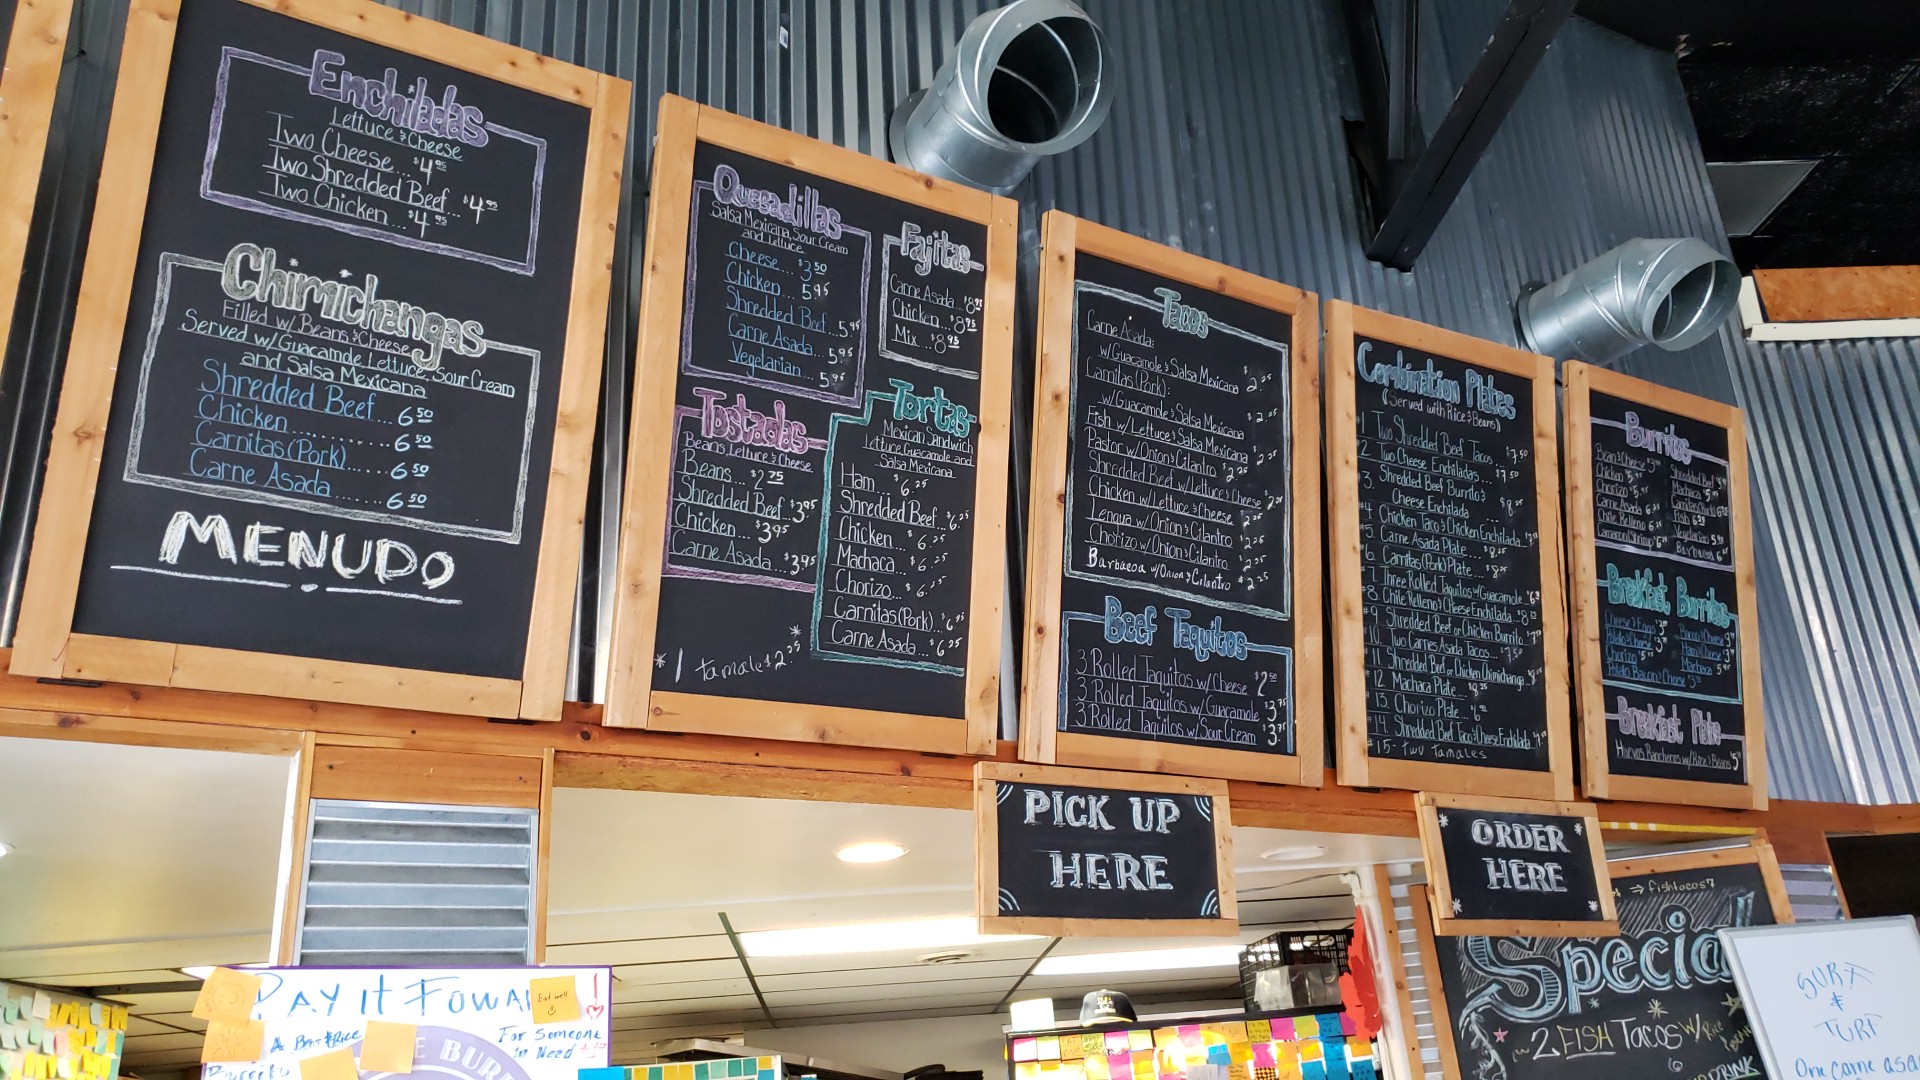 Enchiladas
Lettuce & Cheese
Two Cheese... $4.95
Two Shredded Beef... $4.95
Two Chicken... $4.95
Chimichangas
Filled w/ Beans & Cheese
Served w/ Guacamole, Lettuce, Sour Cream
and Salsa Mexicana
Shredded Beef... 6.50
Chicken........... 6.50
Carnitas (Pork)...... 6.50
Carne Asada....... 6.50
MENUDO
Quesadillas
Salsa Mexicana, Sour Cream
and Lettuce
Cheese... $3.50
Chicken... 5.95
Shredded Beef... 5.95
Carne Asada... 5.95
Vegetarian... 5.95
Fajitas
Carne Asada $8.95
Chicken... $8.95
Mix... $8.95
Tostadas
Beans, Lettuce & Cheese
Beans... $2.75
Shredded Beef $3.95
Chicken... $3.95
Carne Asada... $3.95
* 1 tamale $2.75 *
Tortas
Mexican Sandwich
Lettuce, Guacamole, and
Salsa Mexicana
Ham... $6.25
Shredded Beef... $6.25
Chicken... $6.25
Machaca... $6.25
Chorizo... $6.25
Carnitas (Pork)... $6.25
Carne Asada... $6.25
Tacos
Carne Asada:
w/ Guacamole & Salsa Mexicana $2.25
Carnitas (Pork):
w/ Guacamole & Salsa Mexicana $2.25
Fish w/ Lettuce & Salsa Mexicana 2.25
Pastor w/ Onion & Cilantro $2.25
Shredded Beef w/ Lettuce & Cheese 2.25
Chicken w/ Lettuce & Cheese $2.25
Lengua w/ Onion & Cilantro $2.25
Chorizo w/ Onion & Cilantro $2.25
Barbacoa w/ Onion & Cilantro $2.25
Beef Taquitos
3 Rolled Taquitos w/ Cheese $2.50
3 Rolled Taquitos w/ Guacamole $3.75
3 Rolled Taquitos w/ Sour Cream $3.75
Combination Plates
(Served with Rice & Beans)
#1 Two Shredded Beef Tacos... $7.50
#2. Two Cheese Enchiladas... $7.50
#3. Shredded Beef Burrito &
Cheese Enchilada ... $8.25
#4. Chicken Taco & Chicken Enchilada
#5. Carne Asada Plate... $8.25
#6. Carnitas (Pork) Plate... $8.25
#7. Three Rolled Taquitos w/ Guacamole
#8. Chile Relleno & Cheese Enchilada
#9. Shredded Beef or Chicken Burrito
#10. Two Carnes Asada Tacos... $7.50
#11. Shredded Beef or Chicken Chimichanga
#12. Machaca Plate... $8.25
#13. Chorizo Plate...
#14. Shredded Beef Taco & Cheese Enchilada
#15- two tamales
Burritos
Bean & Cheese
Chicken
Chorizo
Carne Asada
Chile Relleno
Camaron (Shrimp)
Shredded Beef
Machaca
Carnitas (Pork)
Fish
Vegetarian
Barbacoa
Breakfast Burritos
Cheese & Eggs
Potato & Cheese
Chorizo
Potato Bacon & Cheese
Bacon & Cheese
Ham & Cheese
Machaca
Breakfast Plate
Huevos Rancheros w/ Rice & Beans
PICK UP
HERE
ORDER
HERE
PAY IT FOWA
Eat well
A BEAN & RICE
Burrito
For Someone
in Need
E BURR
fish tacos
Special
2 FISH TACOS W/ Rice
DRINK
SURF
&
TURF
One carne asa